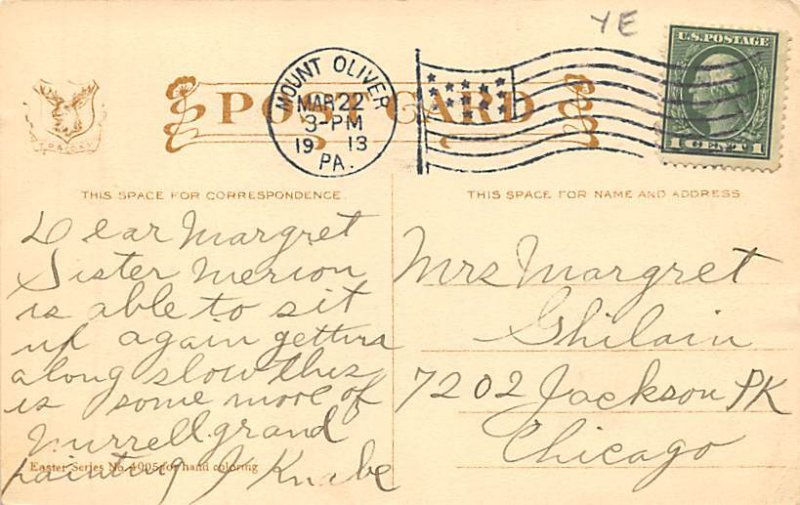 YE
U.S. POSTAGE
1 CENT 1
MOUNT OLIVER
MAR 22
3-PM
1913
PA.
POST CARD
THIS SPACE FOR CORRESPONDENCE.
THIS SPACE FOR NAME AND ADDRESS
Dear Margret
Sister Merion
is able to sit
up again getting
along slow this
is some more of
Murrell grand
painting J Knabe
Easter Series No. 4005 for hand coloring
Mrs Margret
Ghilain
7202 Jackson PK
Chicago